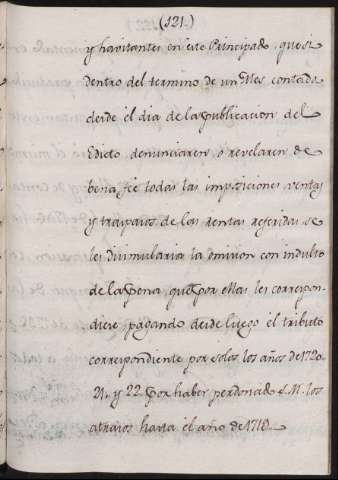 (121.)
y havitantes en este Principado, que si
dentro del termino de un Mes contado
desde el dia de la publicacion del
Edicto denunciaren, ò revelaren de
bena fee todas las imposiciones ventas
y traspasos de las rentas referidas se
les disimularia la omision con indulto
de la pena que por ellas les correspon-
diere pagando desde luego el tributo
correspondiente por solos los años de 1720.
21. y 22. por haber perdonado S. M. los
atrasos hasta el año de 1719.